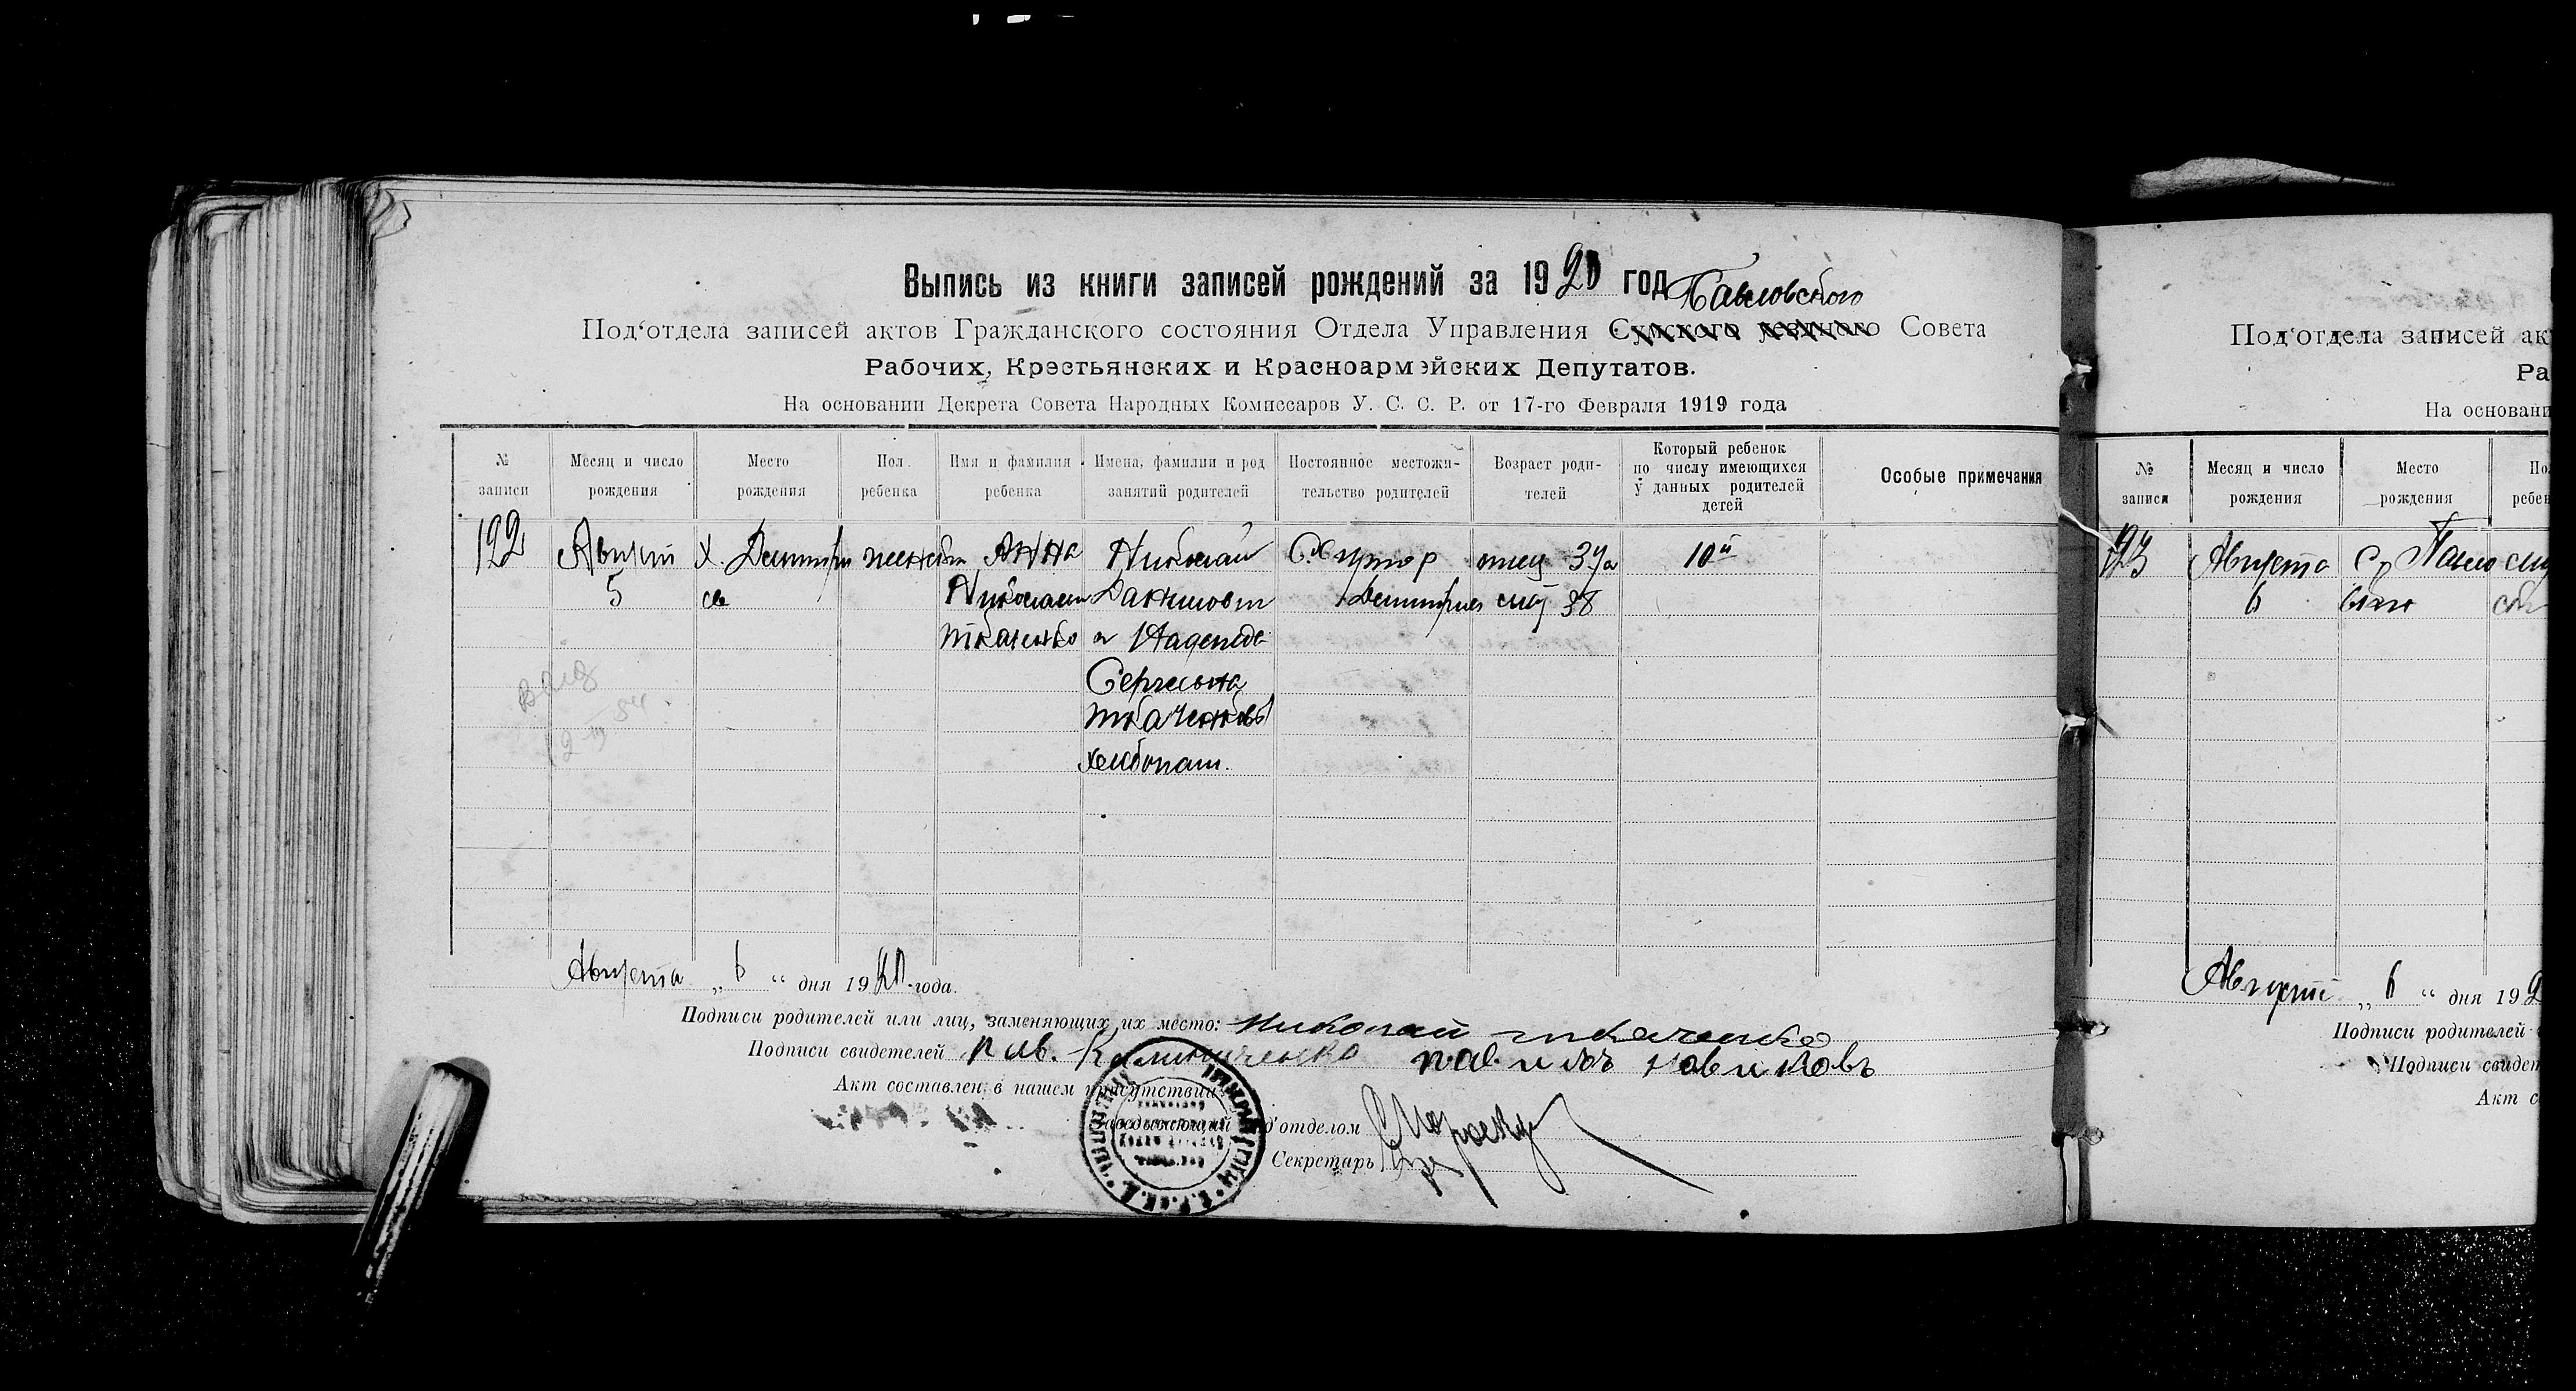 Выпись из книги записей рождений за 1920 год
Павловского
Под'отдела записей актов Гражданского состояния Отдела Управления Сумского уездного Совета
Рабочих, Крестьянских и Красноармейских Депутатов.
На основании Декрета Совета Народных Комиссаров У. С. С. Р. от 17-го Февраля 1919 года
№ записи
Месяц и число рождения
Место рождения
Пол ребенка
Имя и фамилия ребенка
Имена, фамилии и род занятий родителей
Постоянное местожительство родителей
Возраст родителей
Который ребенок по числу имеющихся у данных родителей детей
Особые примечания
192
Август
5
Х.
Анна
Ткаченко
Николай
Данилович
и Надежда
Сергеевна
Ткаченковы
хлебопаш.
Хутор
38
10й
Августа „ 6 “ дня 1920 года.
Подписи родителей или лиц, заменяющих их место: Николай Ткаченко
Подписи свидетелей Калиниченко Новиковъ
Акт составлен, в нашем присутствии
Заведывающий под'отделом
Секретарь
Под'отдела записей ак
Ра
На основани
№ записи
Месяц и число рождения
Место рождения
По
ребен
193
Августа
6
С.
Август „ 6 “ дня 192
Подписи родителей
Подписи свидет
Акт с